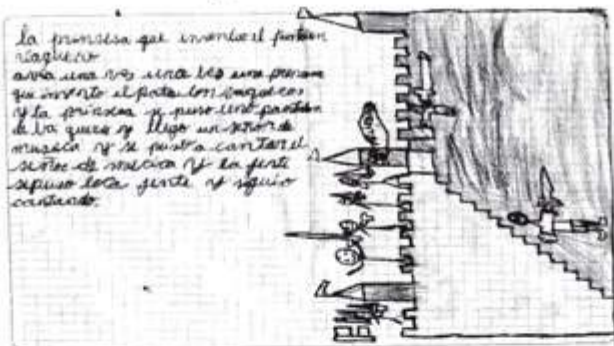 la prinsesa que invento el pantalon
vaquero
avia una ves una bes una prensesa
que invento el pata lon vaqueros
y la prinsesa se puso uno pantalon
de ba quero y llego un señor de
musica y se puso a cantar el
señor de musica y la jente
se puso loca jente y siguio
cantando.